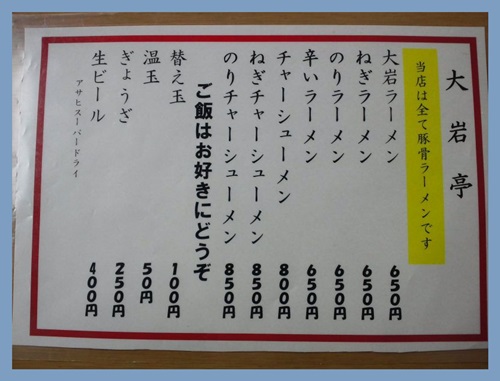 大岩亭
当店は全て豚骨ラーメンです
大岩ラーメン 650円
ねぎラーメン 650円
のりラーメン 650円
辛いラーメン 650円
チャーシューメン 800円
ねぎチャーシューメン 850円
のりチャーシューメン 850円
ご飯はお好きにどうぞ
替え玉 100円
温玉 50円
ぎょうざ 250円
生ビール 400円
アサヒスーパードライ